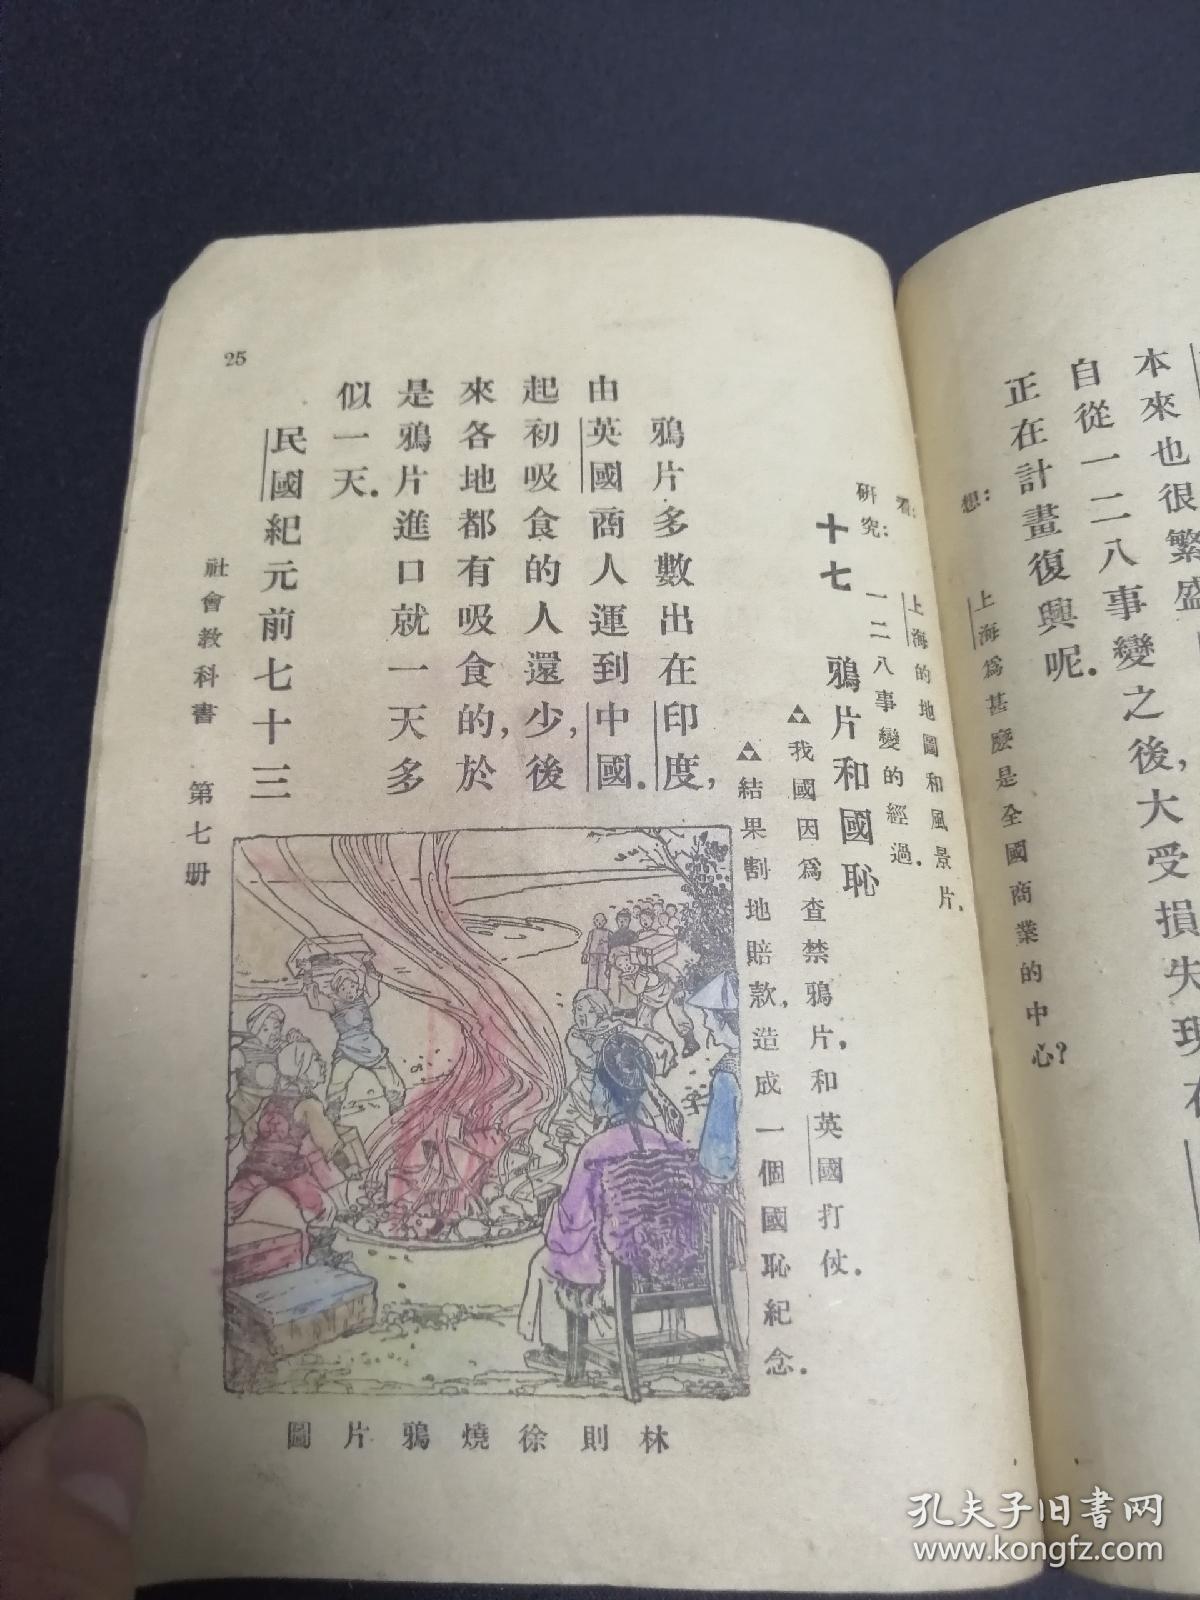 本來也很繁盛
自從一二八事變之後,大受損失現在
正在計畫復興呢.
想: 上海爲甚麼是全國商業的中心?
看: 上海的地圖和風景片.
研究: 一二八事變的經過.
十七 鴉片和國恥
▲我國因爲查禁鴉片,和英國打仗.
▲結果割地賠款,造成一個國恥紀念.
鴉片多數出在印度,
由英國商人運到中國.
起初吸食的人還少,後
來各地都有吸食的,於
是鴉片進口就一天多
似一天.
民國紀元前七十三
林則徐燒鴉片圖
社會教科書 第七册
25
孔夫子旧书网
www.kongfz.com